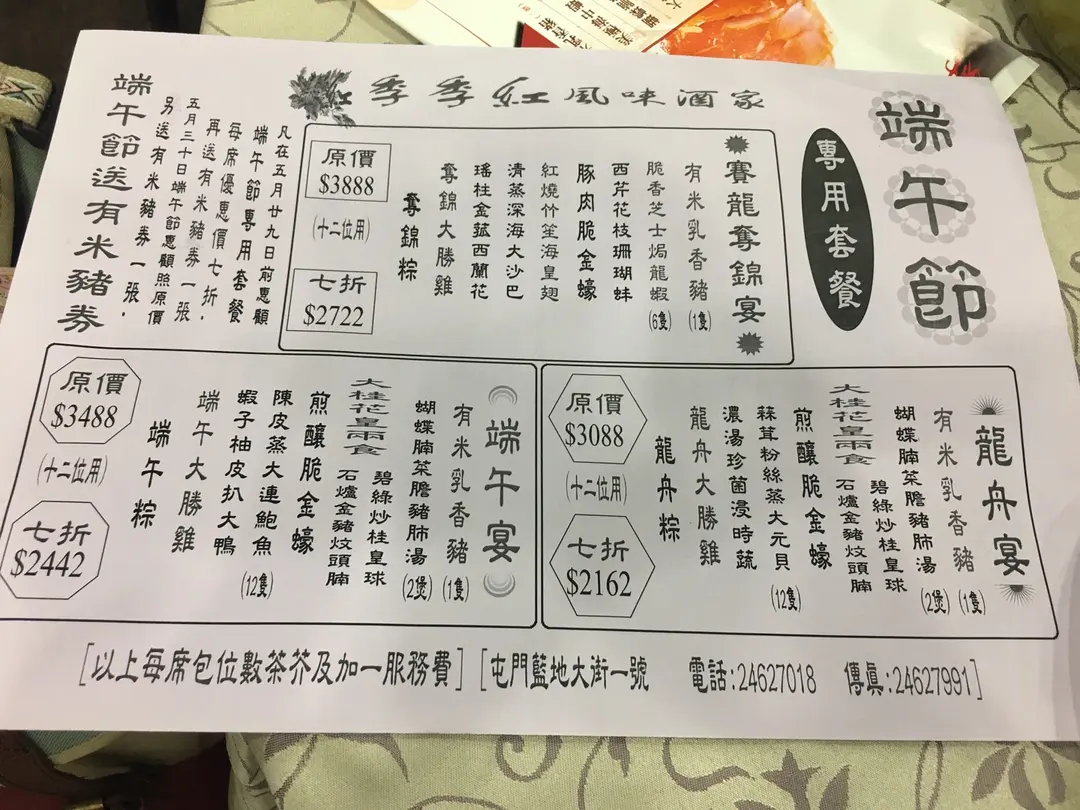 季季紅風味酒家
端午節
專用套餐
賽龍奪錦宴
有米乳香豬(1隻)
脆香芝士焗龍蝦(6隻)
西芹花枝珊瑚蚌
豚肉脆金蠔
紅燒竹笙海皇翅
清蒸深海大沙巴
瑤柱金菇西蘭花
奪錦大勝雞
奪錦粽
原價
$3888
(十二位用)
七折
$2722
凡在五月廿九日前惠顧
端午節專用套餐
每席優惠價七折,
再送有米豬券一張,
五月三十日端午節惠顧照原價
另送有米豬券一張
端午節送有米豬券
龍舟宴
有米乳香豬(1隻)
蝴蝶腩菜膽豬肺湯(2煲)
大桂花皇兩食
碧綠炒桂皇球
石爐金豬炆頭腩
煎釀脆金蠔
蒜茸粉絲蒸大元貝(12隻)
濃湯珍菌浸時蔬
龍舟大勝雞
龍舟粽
原價
$3088
(十二位用)
七折
$2162
端午宴
有米乳香豬(1隻)
蝴蝶腩菜膽豬肺湯(2煲)
大桂花皇兩食
碧綠炒桂皇球
石爐金豬炆頭腩
煎釀脆金蠔
陳皮蒸大連鮑魚(12隻)
蝦子柚皮扒大鴨
端午大勝雞
端午粽
原價
$3488
(十二位用)
七折
$2442
[以上每席包位數茶芥及加一服務費] [屯門藍地大街一號 電話:24627018 傳真:24627991]